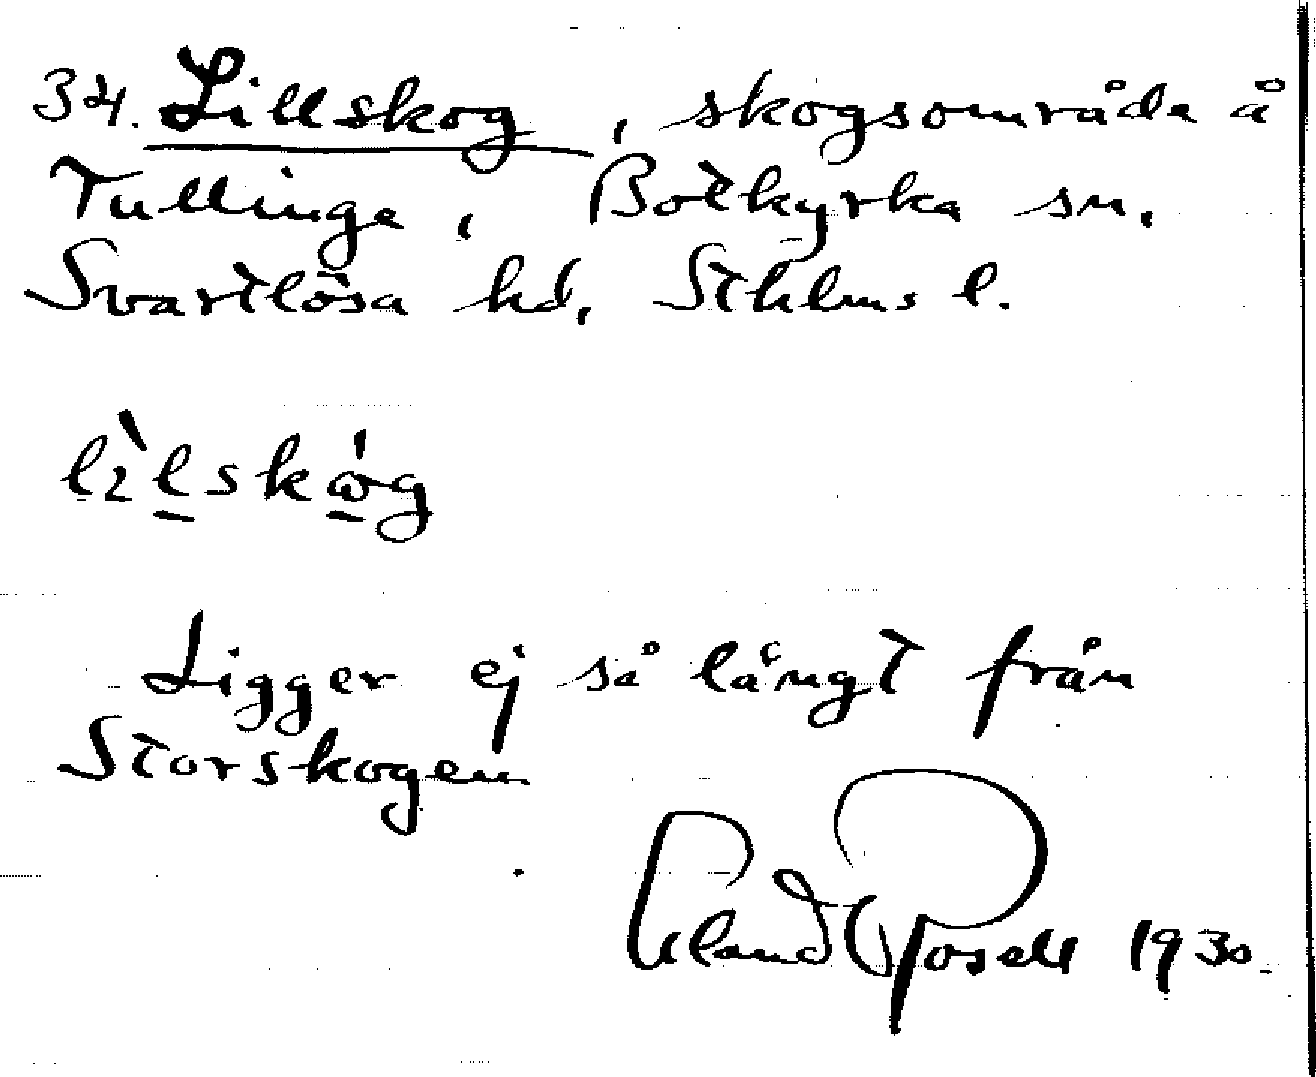 34. Lillskog, skogsområde å
Tullinge, Botkyrka sn,
Svartlösa hd, Sthlms l.
lìlskóg
Ligger ej så långt från
Storskogen
Erland Rosell 1930